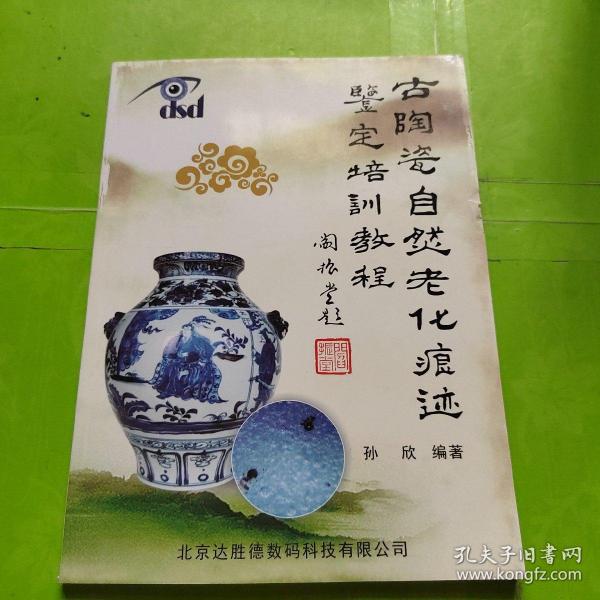 dsd
古陶瓷自然老化痕迹
鑒定培訓教程
阎振堂题
孙欣 编著
北京达胜德数码科技有限公司
孔夫子旧书网
www.kongfz.com